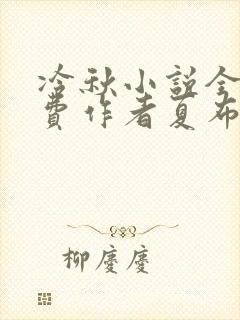 冷秋小説全
費作者夏布
柳慶慶